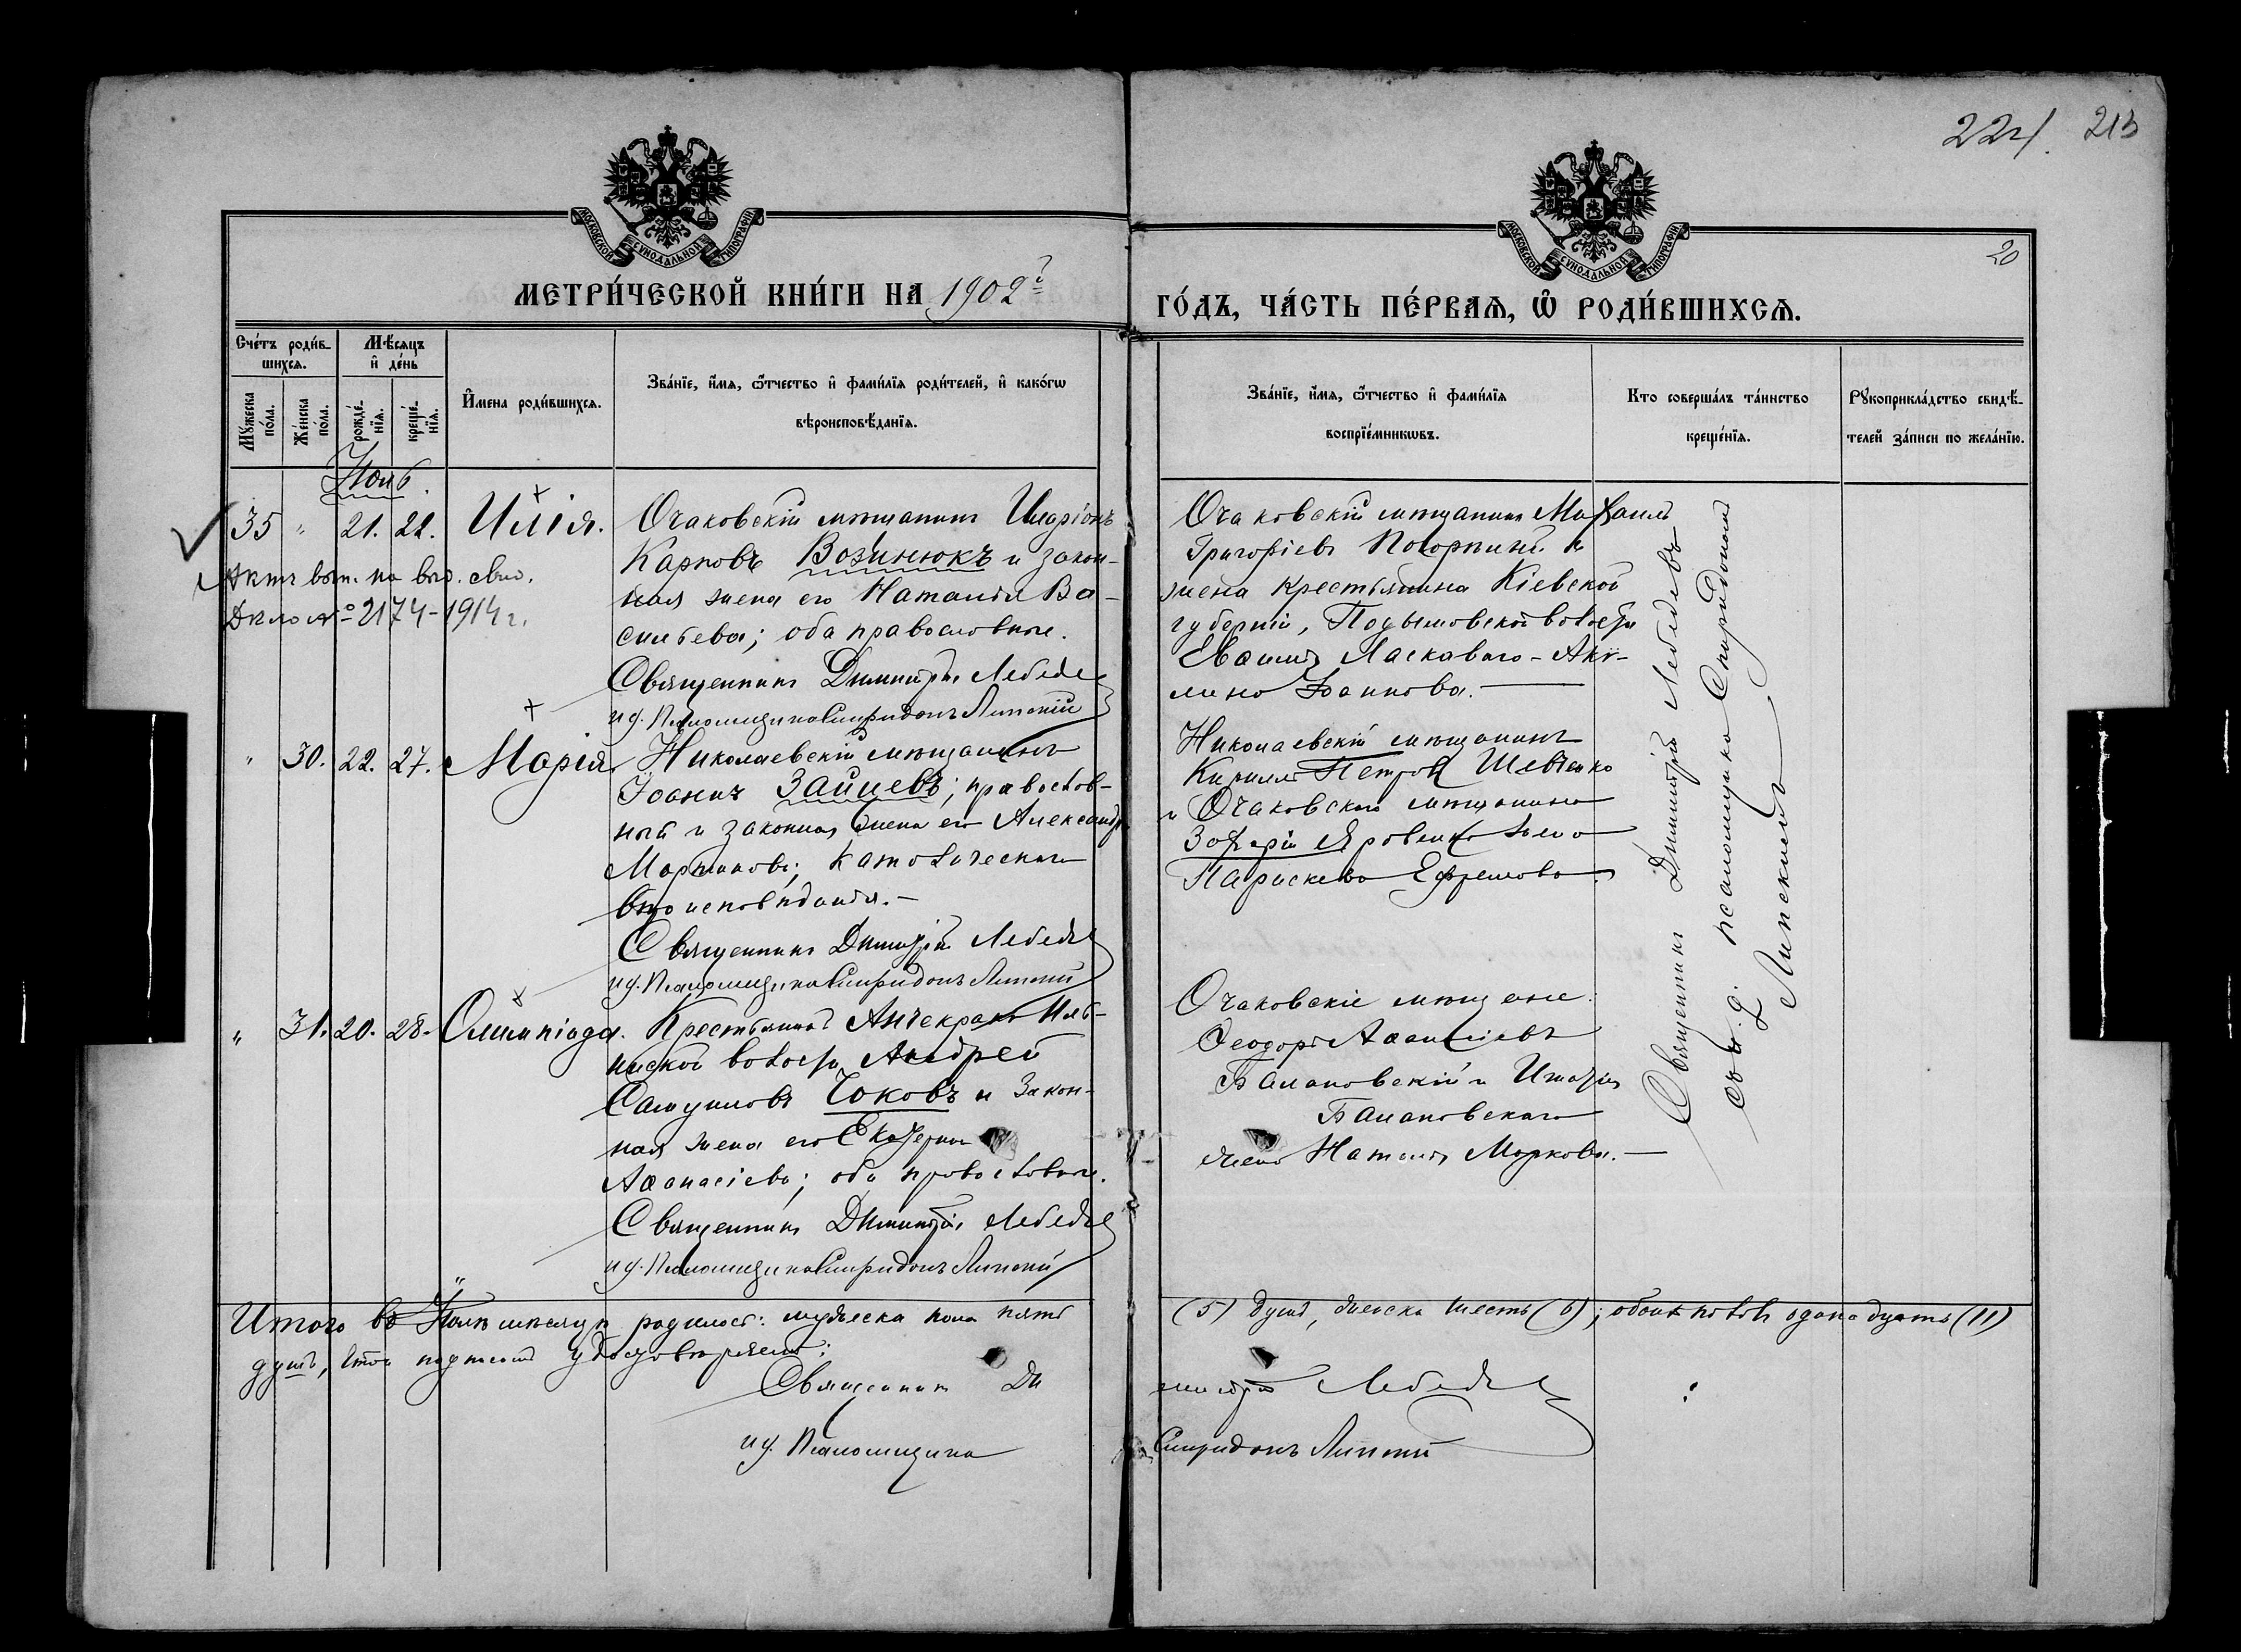 224. 213
20
МОСКОВСКОЙ СѴНОДАЛЬНОЙ ТИПОГРАФІИ
МОСКОВСКОЙ СѴНОДАЛЬНОЙ ТИПОГРАФІИ
МЕТРИ́ЧЕСКОЙ КНИ́ГИ НА 1902 й
ГО́ДЪ, ЧА́СТЬ ПЕ́РВАѦ, Ѽ РОДИ́ВШИХСѦ.
Сче́тъ роди́в-
шихсѧ.
Мꙋ́жеска по́ла.
Же́нска по́ла.
Мѣ́сѧцъ
и҆ де́нь
рожде́-
нїѧ.
креще́-
нїѧ.
И҆мена роди́вшихсѧ.
Зва́нїе, и҆́мѧ, ѻ҆́тчество и҆ фами́лїѧ роди́телей, и҆ како́гѡ
вѣроисповѣ́данїѧ.
Зва́нїе, и҆́мѧ, ѻ҆́тчество и҆ фами́лїѧ
воспрїе́мникѡвъ.
Кто соверша́лъ та́инство
креще́нїѧ.
Рꙋкоприкла́дство свидѣ́-
телей за́писи по жела́нїю.
35 " 21. 22. Илія.
Очаковскій мѣщанинъ Иларіонъ
Карповъ Возинюкъ и закон-
ная жена его Наталія Ва-
сильева; оба православные.
Священникъ Димитрій Лебедев
и д. Псаломщика Спиридонъ Липскій
Актъ вып. на
Дѣло № 2174-1914 г.
Очаковскій мѣщанинъ Михаилъ
Григоріевъ и
жена крестьянина Кіевской
губерніи, волости
Ласкаваго - Аки-
лина Іоаннова.
" 30. 22. 27. Марія
Николаевскій мѣщанинъ
Іоаннъ Зайцевъ; православ-
ный и законная жена его Александра
Мартинова; католическаго
вѣроисповѣданія.
Священникъ Димитрій Лебедев
и д. Псаломщика Спиридонъ Липскій
Николаевскій мѣщанинъ
Кириллъ Петровъ Шевченко
и Очаковскаго мѣщанина
Захарія Яровенко жена
Параскева Ефремова.
" 31. 20. 28. Олимпіада.
Крестьянинъ Анчекрако-Иль-
инской волости Андрей
Самуиловъ Чоковъ и закон-
ная жена его Екатерина
Аѳанасіева; оба православные.
Священникъ Димитрій Лебедев
и д. Псаломщика Спиридонъ Липскій
Очаковскіе мѣщане:
Ѳеодоръ Аѳанасіевъ
Балановскій и
Балановскаго
жена Наталія Маркова.
Священникъ Димитрій Лебедевъ
съ и. д. псаломщика Спиридономъ
Липскимъ
Итого въ мѣсяцѣ родилось: мужеска пола пять
(5) душъ, женска шесть (6); обоихъ половъ одинадцать (11)
душъ, что подписомъ удостовѣряемъ:
Священникъ Ди
митрій Лебедев
и д. Псаломщика
Спиридонъ Липскій